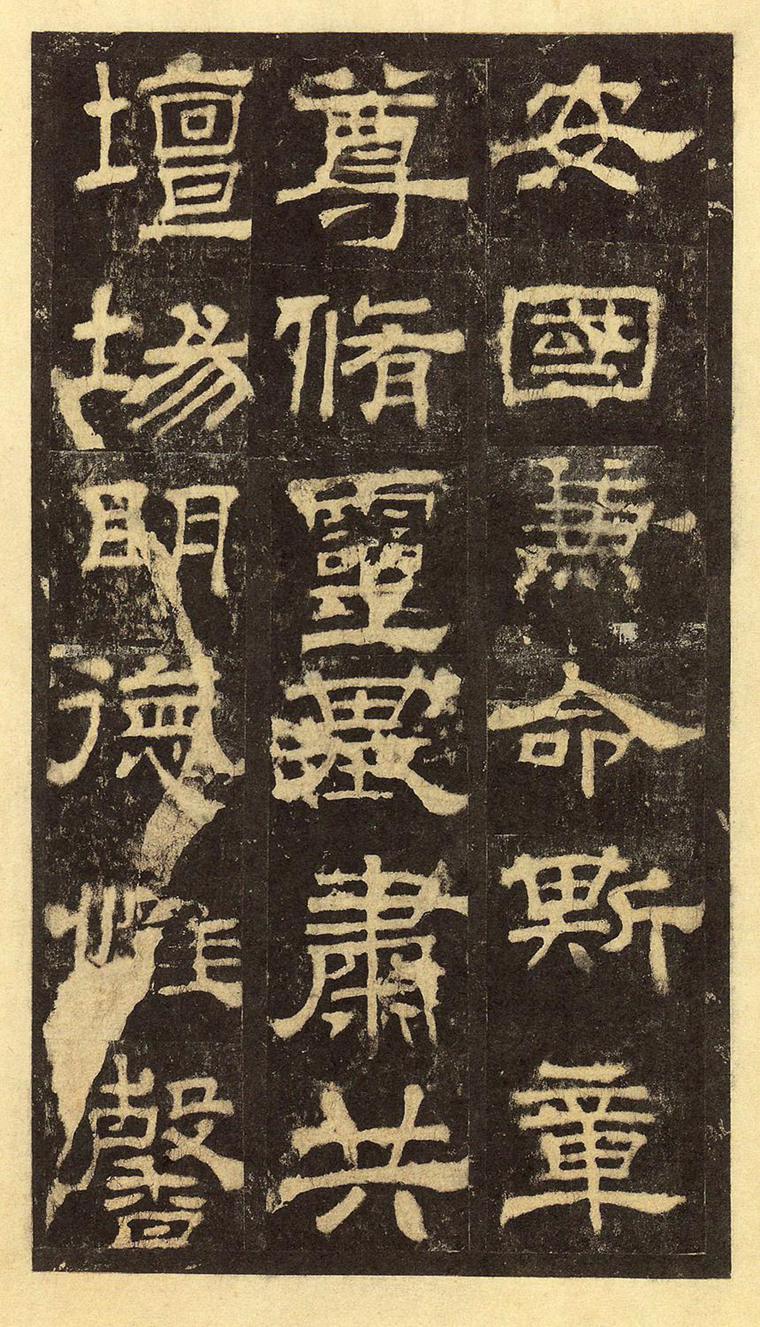 安國兼命斯章
尊脩靈基肅共
壇場明德惟馨